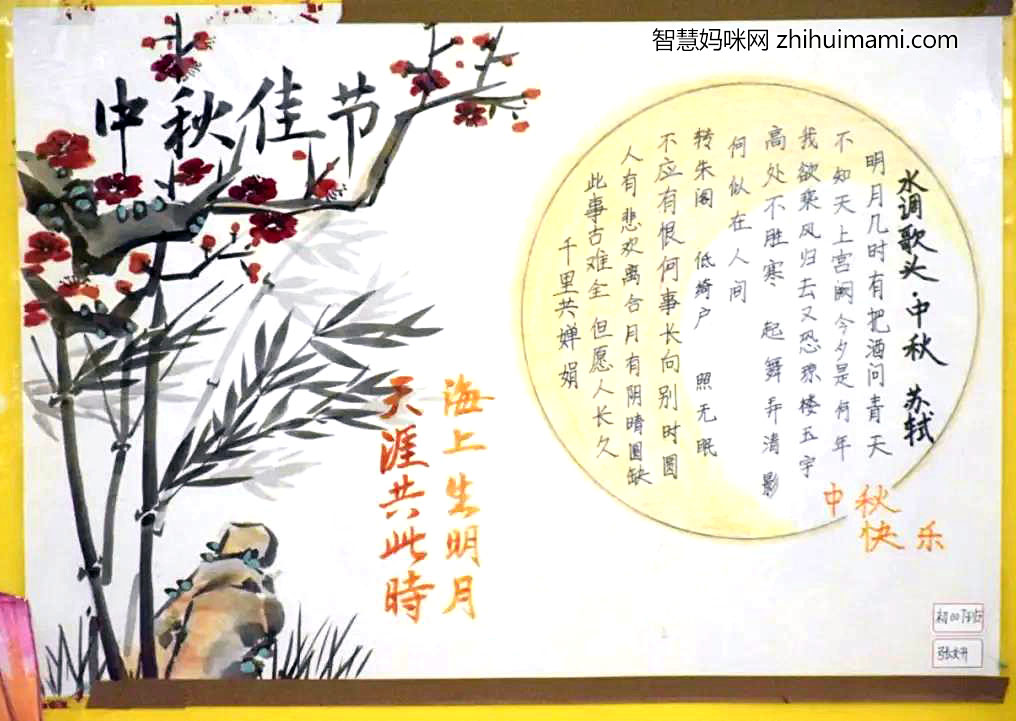 智慧妈咪网 zhihuimami.com
中秋佳节
水调歌头·中秋 苏轼
明月几时有把酒问青天
不知天上宫阙今夕是何年
我欲乘风归去又恐琼楼五宇
高处不胜寒 起舞弄清影
何似在人间
转朱阁 低绮户 照无眠
不应有恨何事长向别时圆
人有悲欢离合月有阴晴圆缺
此事古难全 但愿人长久
千里共婵娟
海上生明月
天涯共此時
中秋
快乐